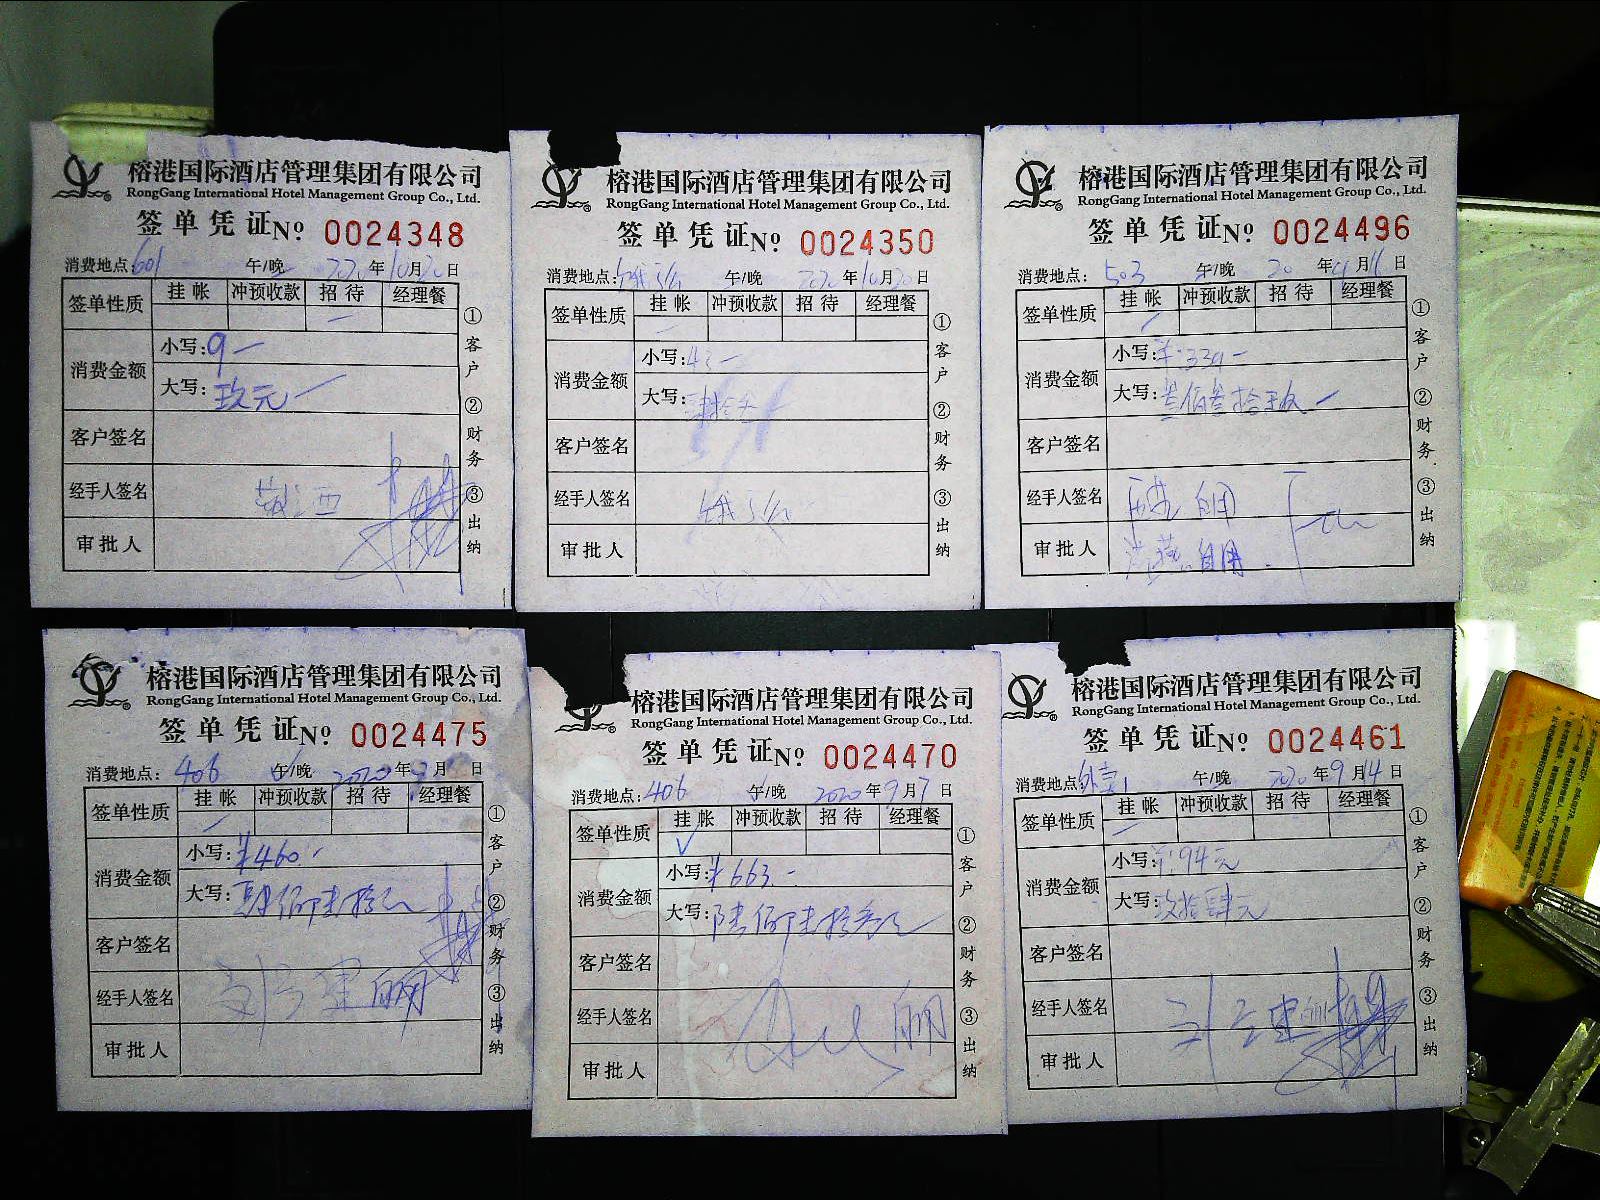 榕港国际酒店管理集团有限公司
RongGang International Hotel Management Group Co., Ltd.
签单凭证№ 0024348
消费地点:601 午/晚 2020年10月20日
签单性质 挂帐 冲预收款 招待 经理餐
消费金额 小写:9一
大写:玖元
客户签名
经手人签名
审批人
①客户 ②财务 ③出纳
榕港国际酒店管理集团有限公司
RongGang International Hotel Management Group Co., Ltd.
签单凭证№ 0024350
消费地点: 午/晚 2020年10月20日
签单性质 挂帐 冲预收款 招待 经理餐
消费金额 小写:
大写:
客户签名
经手人签名
审批人
①客户 ②财务 ③出纳
榕港国际酒店管理集团有限公司
RongGang International Hotel Management Group Co., Ltd.
签单凭证№ 0024496
消费地点:503 午/晚 20年9月11日
签单性质 挂帐 冲预收款 招待 经理餐
消费金额 小写:¥:339一
大写:叁佰叁拾玖
客户签名
经手人签名 自用
审批人 自用
①客户 ②财务 ③出纳
榕港国际酒店管理集团有限公司
RongGang International Hotel Management Group Co., Ltd.
签单凭证№ 0024475
消费地点:406 午/晚 2020年9月 日
签单性质 挂帐 冲预收款 招待 经理餐
消费金额 小写:¥460.-
大写:肆佰陆拾元
客户签名
经手人签名
审批人
①客户 ②财务 ③出纳
榕港国际酒店管理集团有限公司
RongGang International Hotel Management Group Co., Ltd.
签单凭证№ 0024470
消费地点:406 午/晚 2020年9月7日
签单性质 挂帐 冲预收款 招待 经理餐
消费金额 小写:¥663.-
大写:陆佰陆拾叁元
客户签名
经手人签名
审批人
①客户 ②财务 ③出纳
榕港国际酒店管理集团有限公司
RongGang International Hotel Management Group Co., Ltd.
签单凭证№ 0024461
消费地点: 午/晚 2020年9月14日
签单性质 挂帐 冲预收款 招待 经理餐
消费金额 小写:¥:94元
大写:玖拾肆元
客户签名
经手人签名
审批人
①客户 ②财务 ③出纳